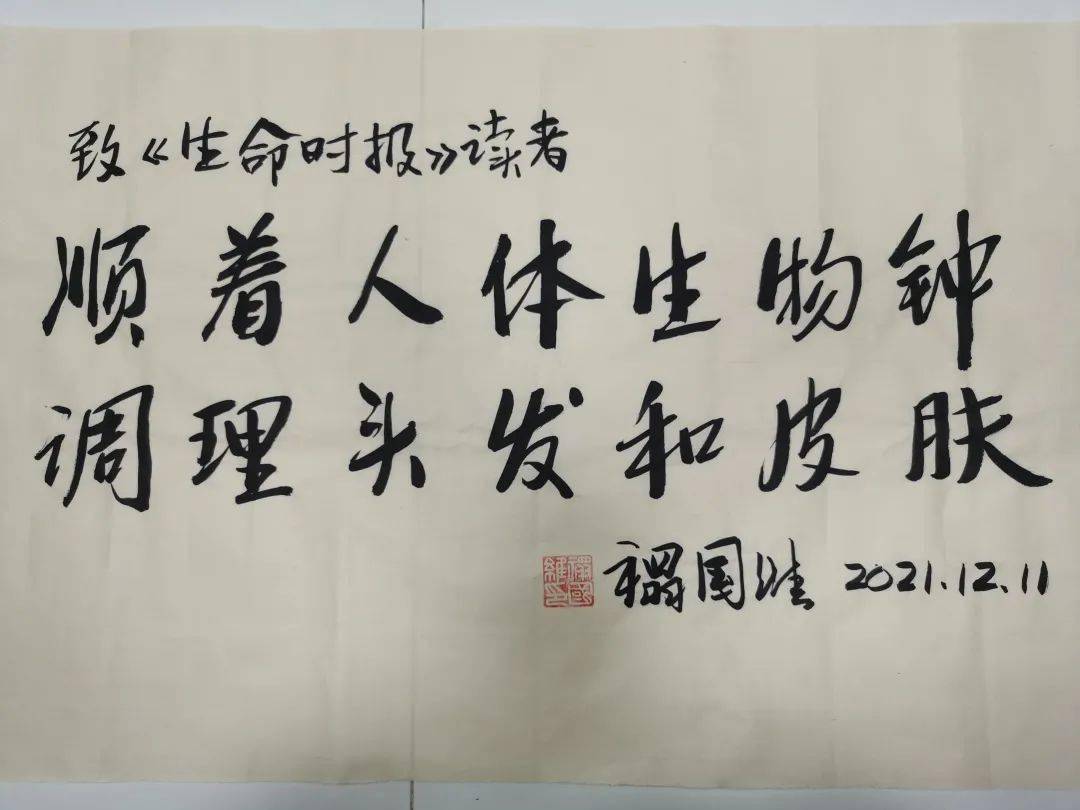 致《生命时报》读者
顺着人体生物钟
调理头发和皮肤
禤国维 2021.12.11
禤國維印